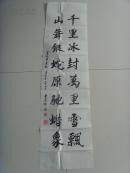 千里冰封萬重雪飄
山舞銀蛇原馳蠟象